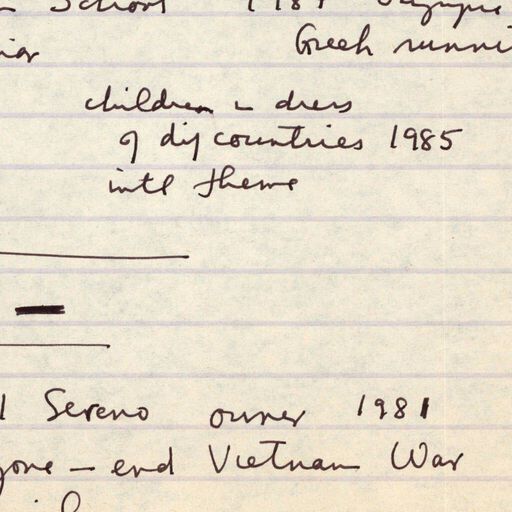 School 198
Greek
children in dress
of dif countries 1985
intl theme
Sereno owner 1981
gone — end Vietnam War